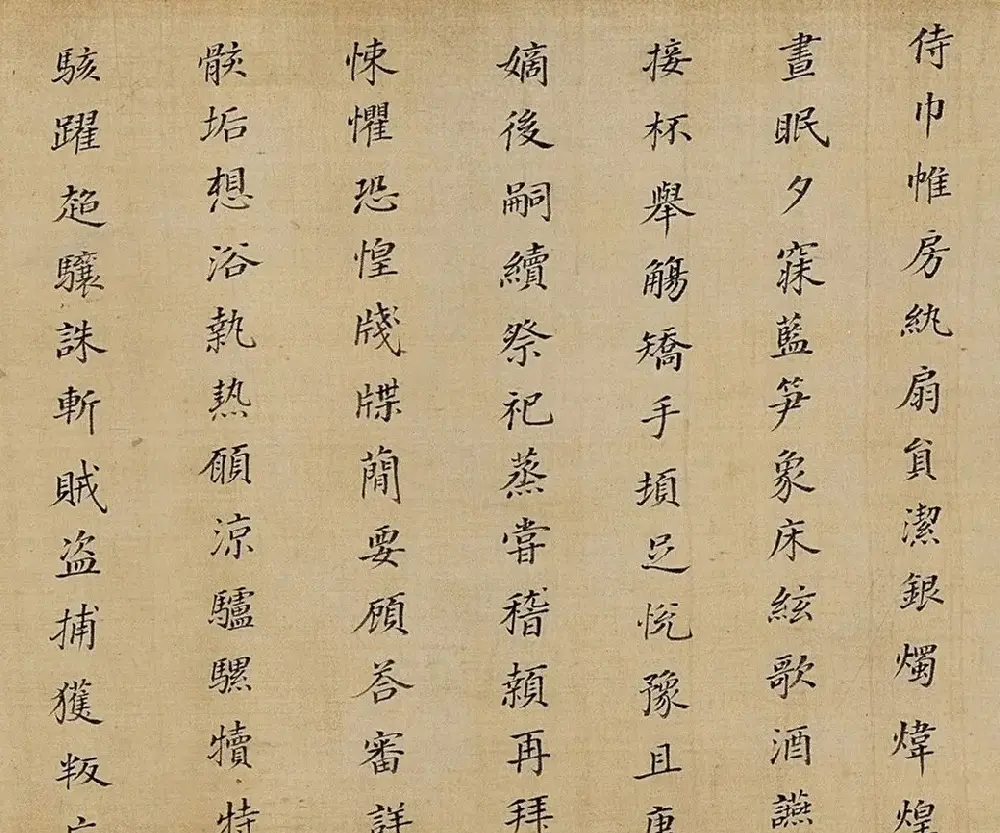 侍巾帷房紈扇員潔銀燭煒煌
晝眠夕寐藍笋象床絃歌酒讌
接杯舉觴矯手頓足悅豫且康
嫡後嗣續祭祀蒸嘗稽顙再拜
悚懼恐惶牋牒蕑要顧荅審詳
骸垢想浴執熱願涼驢騾犢特
駭躍超驤誅斬賊盗捕獲叛亡